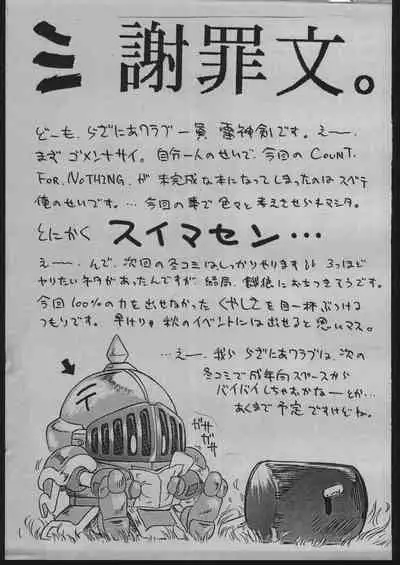 ミ 謝罪文。
どーも、らざにあクラブ一員 雷神剣です。えー、
まず ゴメンナサイ。自分一人のせいで、今回の COUNT.
FOR.NOTHING. が 未完成な本になってしまったのはスベテ
俺のせいです。… 今回の事で色々と考えさせられマシタ。
とにかく スイマセン…
えー、んで、次回の冬コミはしっかりやります 3つほど
ヤりたいネタがあったんですが 結局、餓狼におちつきそうです。
今回100%の力を出せなかった くやしさを目一杯ぶつける
つもりです。早けりゃ 秋のイベントには出せると思いマス。
…えー、我ららざにあクラブは、次の
冬コミで成年向スペースから
バイバイしちゃおかなーとか…
あくまで予定ですけどね。
ガサ
ガサ